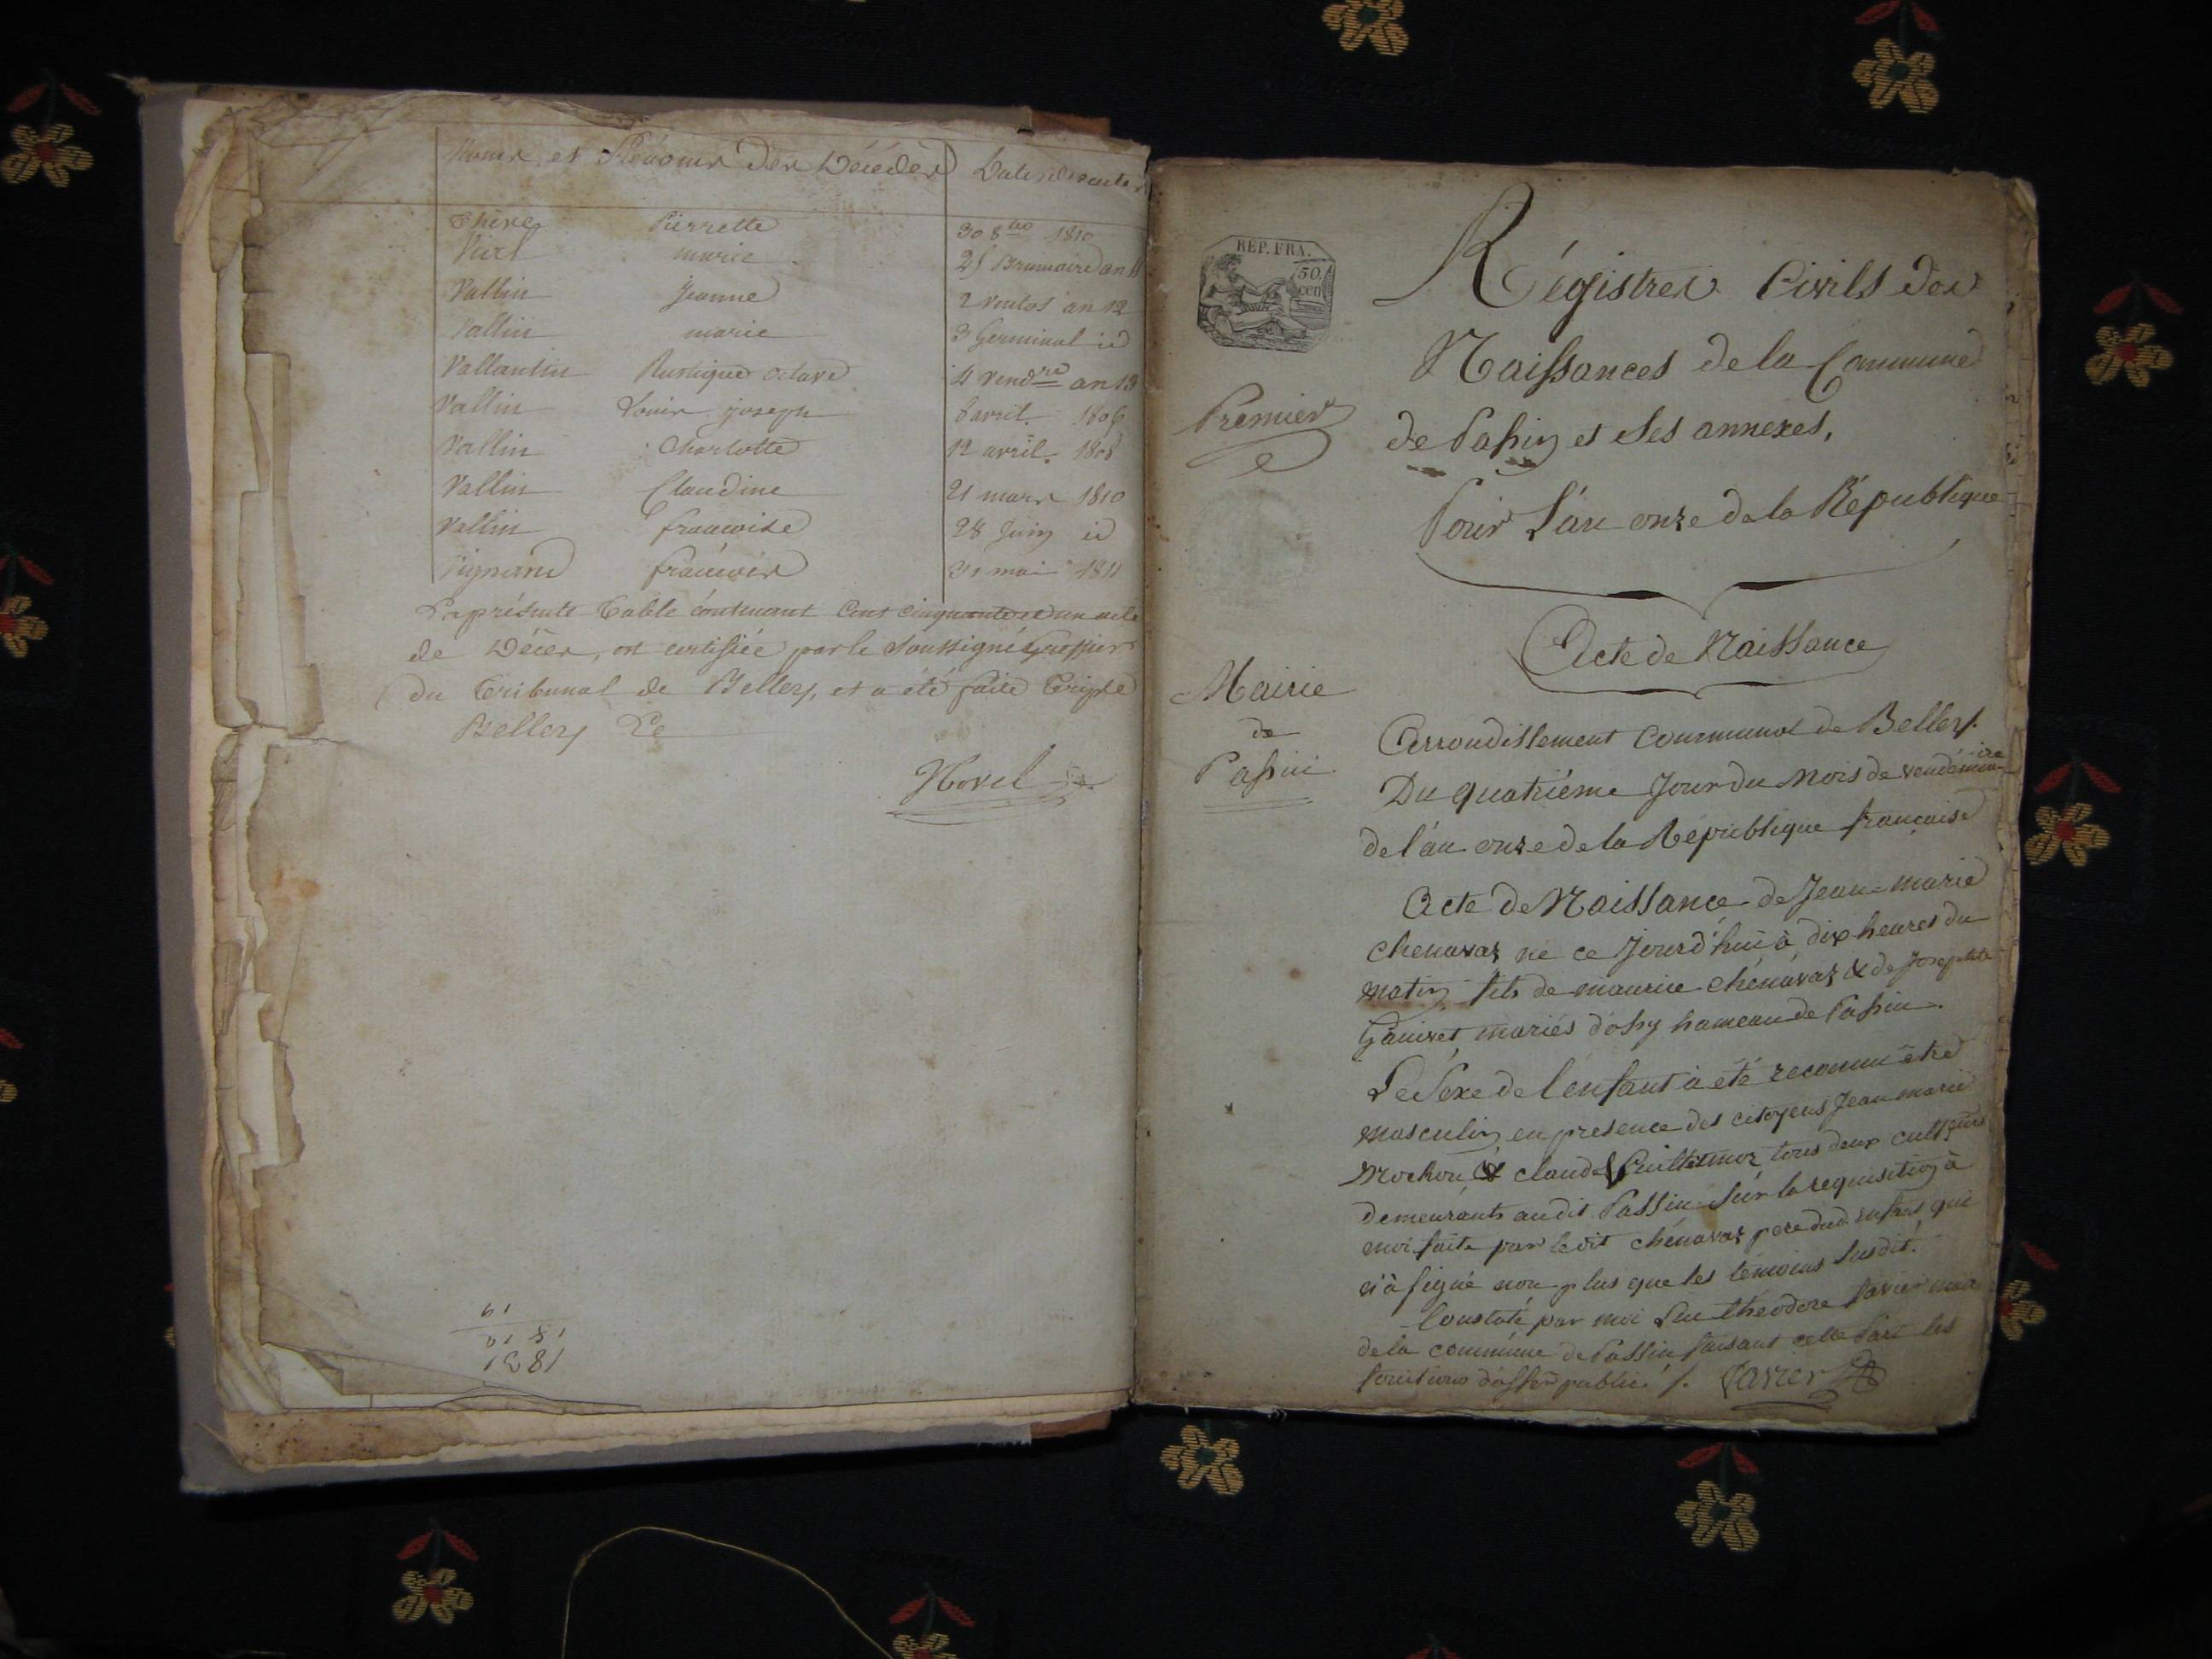 Noms et Prénoms des Décédés Dates des actes
Pierrette 30 8bre 1810
marie 25 Brumaire an 11
Vallin Jeanne 2 ventos an 12
Vallin marie 3 Germinal id
Vallantin Rustique octave 4 vendre an 13
Vallin Louis joseph 8 avril 1806
Vallin Charlotte 12 avril 1808
Vallin Claudine 21 mars 1810
Vallin francoise 28 Juin id
Vignand francois 31 mai 1811
La présente Table contenant Cent cinquante et un acte
de Décès, est certifiée par le Soussigné Greffier
du Tribunal de Belley, et a été faite Triple
Belley Le
1831
18 10
REP. FRA.
50.
cen
Régistres Civils des
Naissances de la Commune
Premier
de Passin et Ses annexes,
Pour L'an onze de la République
Acte de Naissance
Mairie
de
Passin
Arrondissement Communal de Belley.
Du quatriéme Jour du Mois de vendémiaire
de l'an onze de la République francaise
Acte de Naissance de Jean-marie
chenavaz né ce Jourd'hui à dix heures du
matin fils de maurice chénavaz & de Josephte
Ganivet mariés d'ossy hameau de Passin.
Le Sexe de l'enfant à été reconnu être
masculin en presence des citoyens Jean marie
Mochon & claude tous deux cultseurs
demeurants audit Passin. Sur la requisition à
moi faite par ledit chénavaz pere dud. enfant qui
n'à signé non plus que les témoins Susdit.
Constaté par moi théodore Tavier maire
de la commune de Passin faisant celle Part les
fonctions d'offer public. /. Tavier